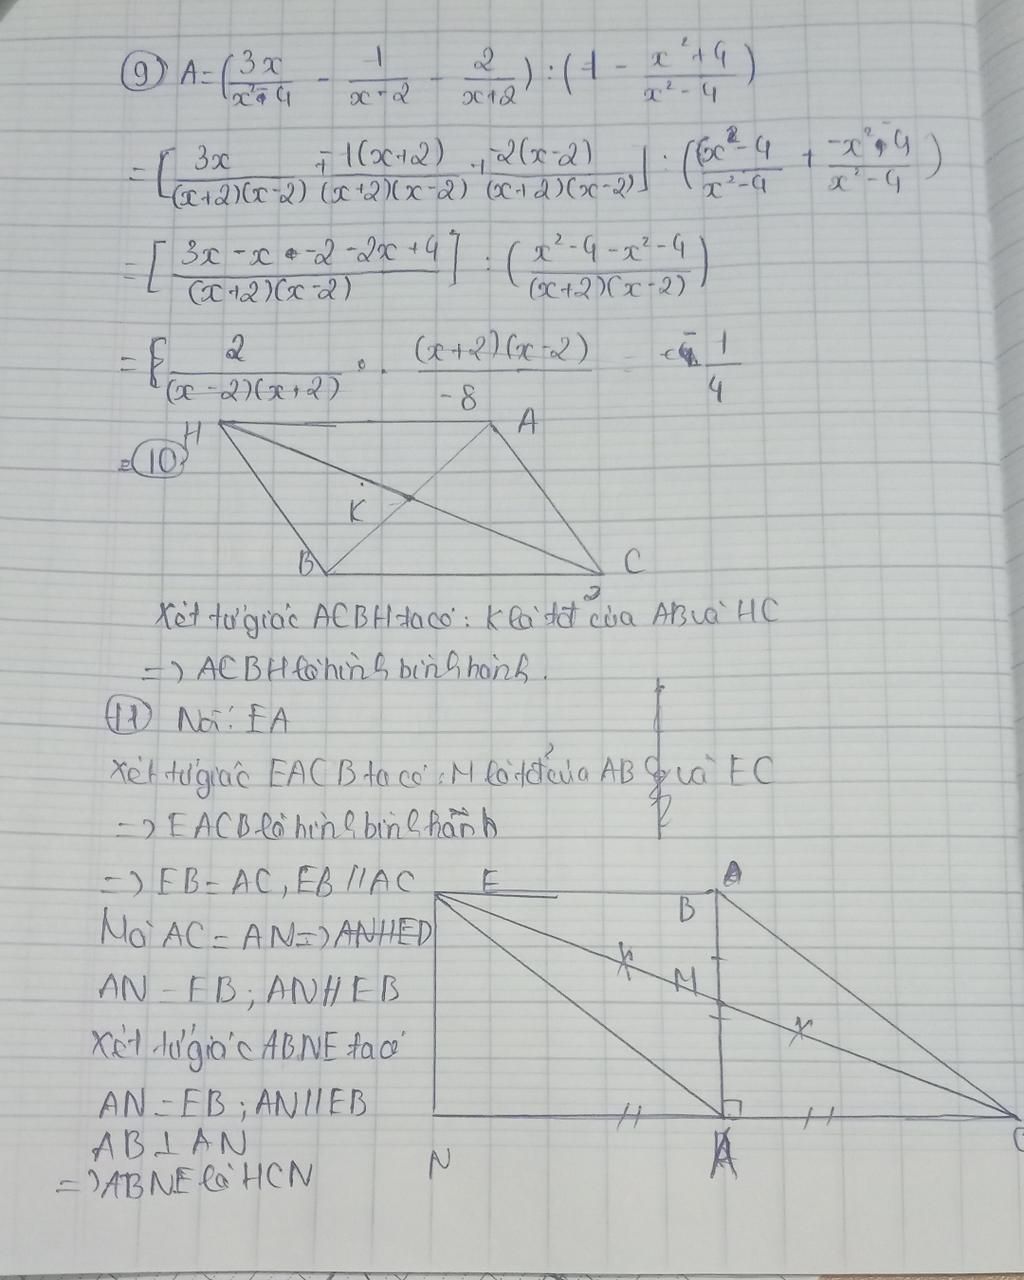 ⑨ A = (3x/(x²-4) - 1/(x-2) - 2/(x+2)) : (1 - (x²+4)/(x²-4))
= [3x/((x+2)(x-2)) + -1(x+2)/((x+2)(x-2)) + -2(x-2)/((x+2)(x-2))] : ((x²-4)/(x²-4) + (-x²-4)/(x²-4))
= [(3x - x - 2 - 2x + 4)/((x+2)(x-2))] : ((x²-4-x²-4)/((x+2)(x-2)))
= 2/((x-2)(x+2)) . (x+2)(x-2)/-8 = -1/4
H
A
⑩
K
B
C
Xét tứ giác ACBH ta có: K là tđ của AB và HC
=> ACBH là hình bình hành.
⑪ Nối: EA
Xét tứ giác EACB ta có: M là tđ của AB và EC
=> EACB là hình bình hành
=> EB = AC, EB // AC
Mà AC = AN =>
AN = EB ; AN // EB
Xét tứ giác ABNE ta có
AN = EB ; AN // EB
AB ⊥ AN
=> ABNE là HCN
E
B
M
N
A
C